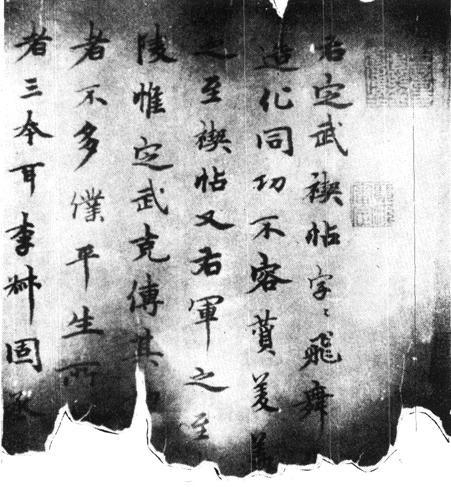 右定武禊帖字〻飛舞
造化同功不容賛美蓋
之至禊帖又右軍之至
陵惟定武克傳其
者不多僕平生所
者三本耳李叔固丞